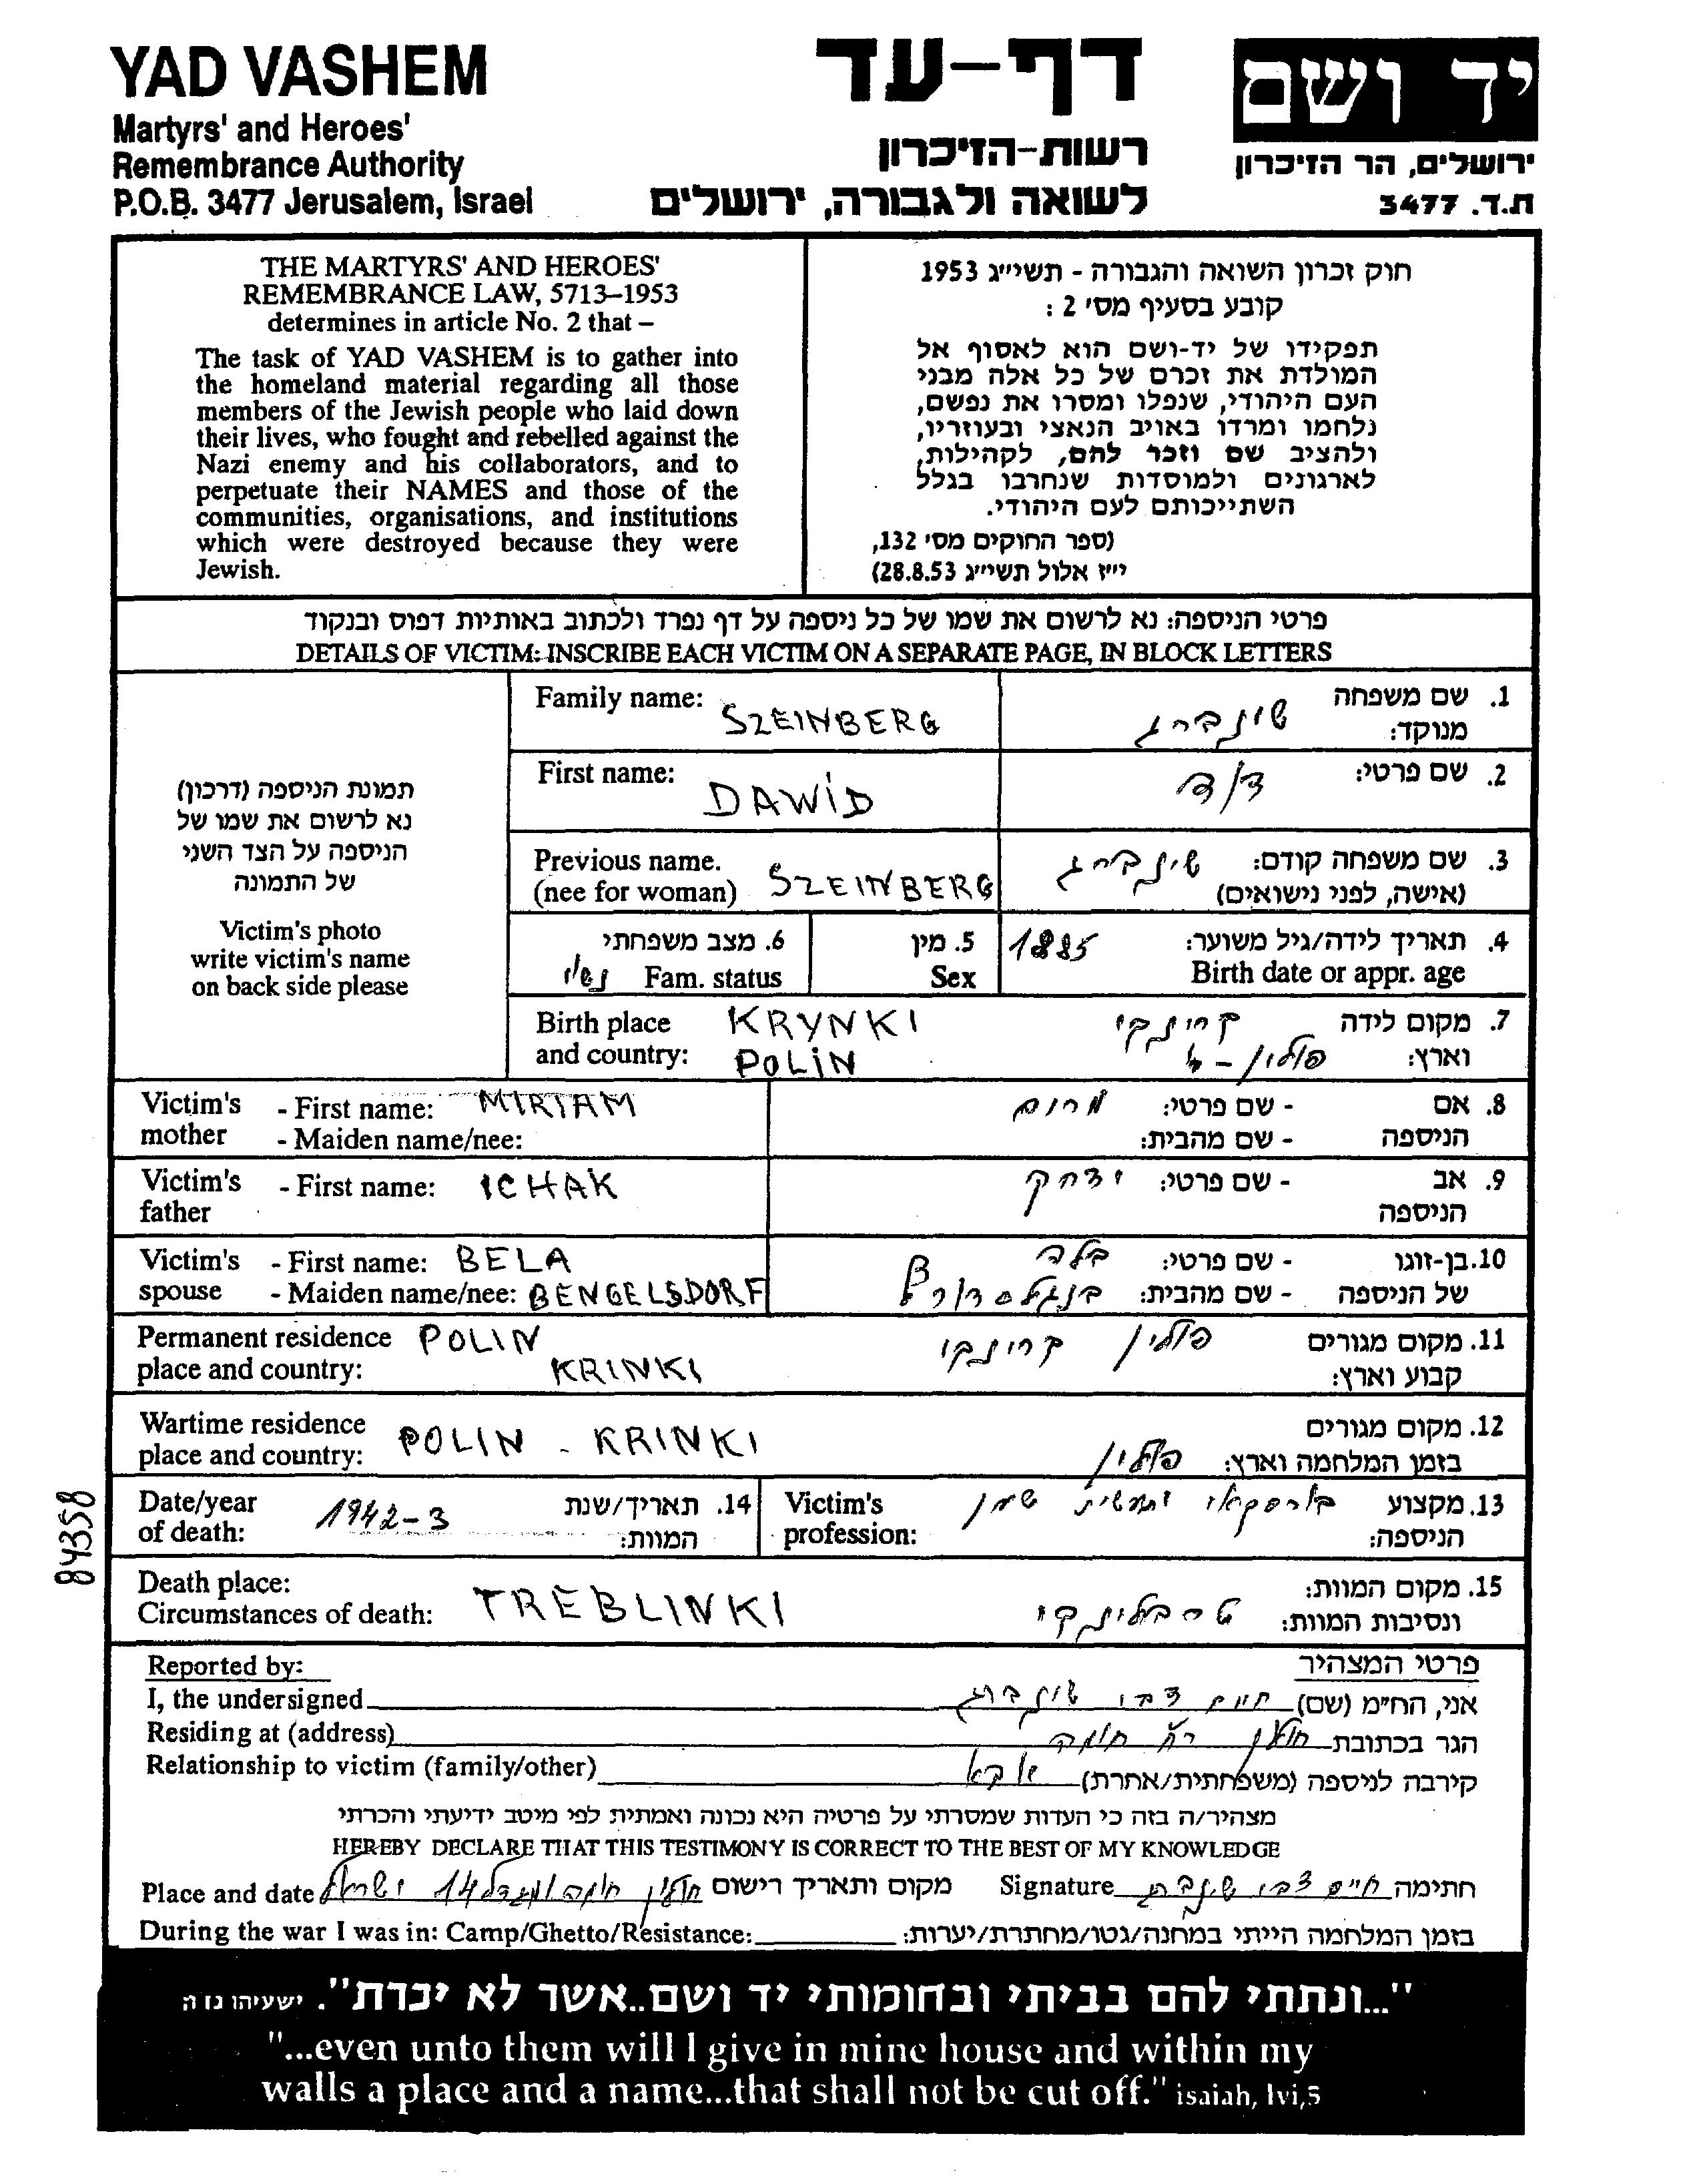 YAD VASHEM
Martyrs' and Heroes'
Remembrance Authority
P.O.B. 3477 Jerusalem, Israel
דף-עד
רשות-הזיכרון
לשואה ולגבורה, ירושלים
יד ושם
ירושלים, הר הזיכרון
ת.ד. 3477
THE MARTYRS' AND HEROES'
REMEMBRANCE LAW, 5713–1953
determines in article No. 2 that –
The task of YAD VASHEM is to gather into
the homeland material regarding all those
members of the Jewish people who laid down
their lives, who fought and rebelled against the
Nazi enemy and his collaborators, and to
perpetuate their NAMES and those of the
communities, organisations, and institutions
which were destroyed because they were
Jewish.
חוק זכרון השואה והגבורה - תשי״ג 1953
קובע בסעיף מס' 2 :
תפקידו של יד-ושם הוא לאסוף אל
המולדת את זכרם של כל אלה מבני
העם היהודי, שנפלו ומסרו את נפשם,
נלחמו ומרדו באויב הנאצי ובעוזריו,
ולהציב שם וזכר להם, לקהילות,
לארגונים ולמוסדות שנחרבו בגלל
השתייכותם לעם היהודי.
(ספר החוקים מס' 132,
י״ז אלול תשי״ג 28.8.53)
פרטי הניספה: נא לרשום את שמו של כל ניספה על דף נפרד ולכתוב באותיות דפוס ובנקוד
DETAILS OF VICTIM: INSCRIBE EACH VICTIM ON A SEPARATE PAGE, IN BLOCK LETTERS
תמונת הניספה (דרכון)
נא לרשום את שמו של
הניספה על הצד השני
של התמונה
Victim's photo
write victim's name
on back side please
Family name: SZEINBERG שינברג 1. שם משפחה
מנוקד:
First name: DAWID דוד 2. שם פרטי:
Previous name. 3. שם משפחה קודם: שינברג
(nee for woman) SZEINBERG (אישה, לפני נישואים)
6. מצב משפחתי 5. מין 1885 4. תאריך לידה/גיל משוער:
Fam. status נשוי Sex Birth date or appr. age
Birth place KRYNKI קרינקי 7. מקום לידה
and country: POLIN פולין וארץ:
Victim's - First name: MIRIAM מרים 8. אם - שם פרטי:
mother - Maiden name/nee: הניספה - שם מהבית:
Victim's - First name: ICHAK יצחק 9. אב - שם פרטי:
father הניספה
Victim's - First name: BELA בלה 10. בן-זוגו - שם פרטי:
spouse - Maiden name/nee: BENGELSDORF בנגלסדורף של הניספה - שם מהבית:
Permanent residence POLIN פולין קרינקי 11. מקום מגורים
place and country: KRINKI קבוע וארץ:
Wartime residence POLIN - KRINKI 12. מקום מגורים
place and country: פולין בזמן המלחמה וארץ:
Date/year 1942-3 14. תאריך/שנת Victim's שמן 13. מקצוע
of death: המוות: profession: הניספה:
Death place: 15. מקום המוות:
Circumstances of death: TREBLINKI טרבלינקי ונסיבות המוות:
Reported by: פרטי המצהיר
I, the undersigned חיים צבי שינברג אני, הח״מ (שם)
Residing at (address) חולון הגר בכתובת
Relationship to victim (family/other) אבא קירבה לניספה (משפחתית/אחרת)
מצהיר/ה בזה כי העדות שמסרתי על פרטיה היא נכונה ואמתית לפי מיטב ידיעתי והכרתי
HEREBY DECLARE THAT THIS TESTIMONY IS CORRECT TO THE BEST OF MY KNOWLEDGE
Place and date חולון חומה ומגדל 14 ישראל מקום ותאריך רישום Signature חיים צבי שינברג חתימה
During the war I was in: Camp/Ghetto/Resistance: בזמן המלחמה הייתי במחנה/גטו/מחתרת/יערות:
"...ונתתי להם בביתי ובחומותי יד ושם..אשר לא יכרת". ישעיהו נו ה
"...even unto them will I give in mine house and within my
walls a place and a name...that shall not be cut off." isaiah, lvi,5
84358